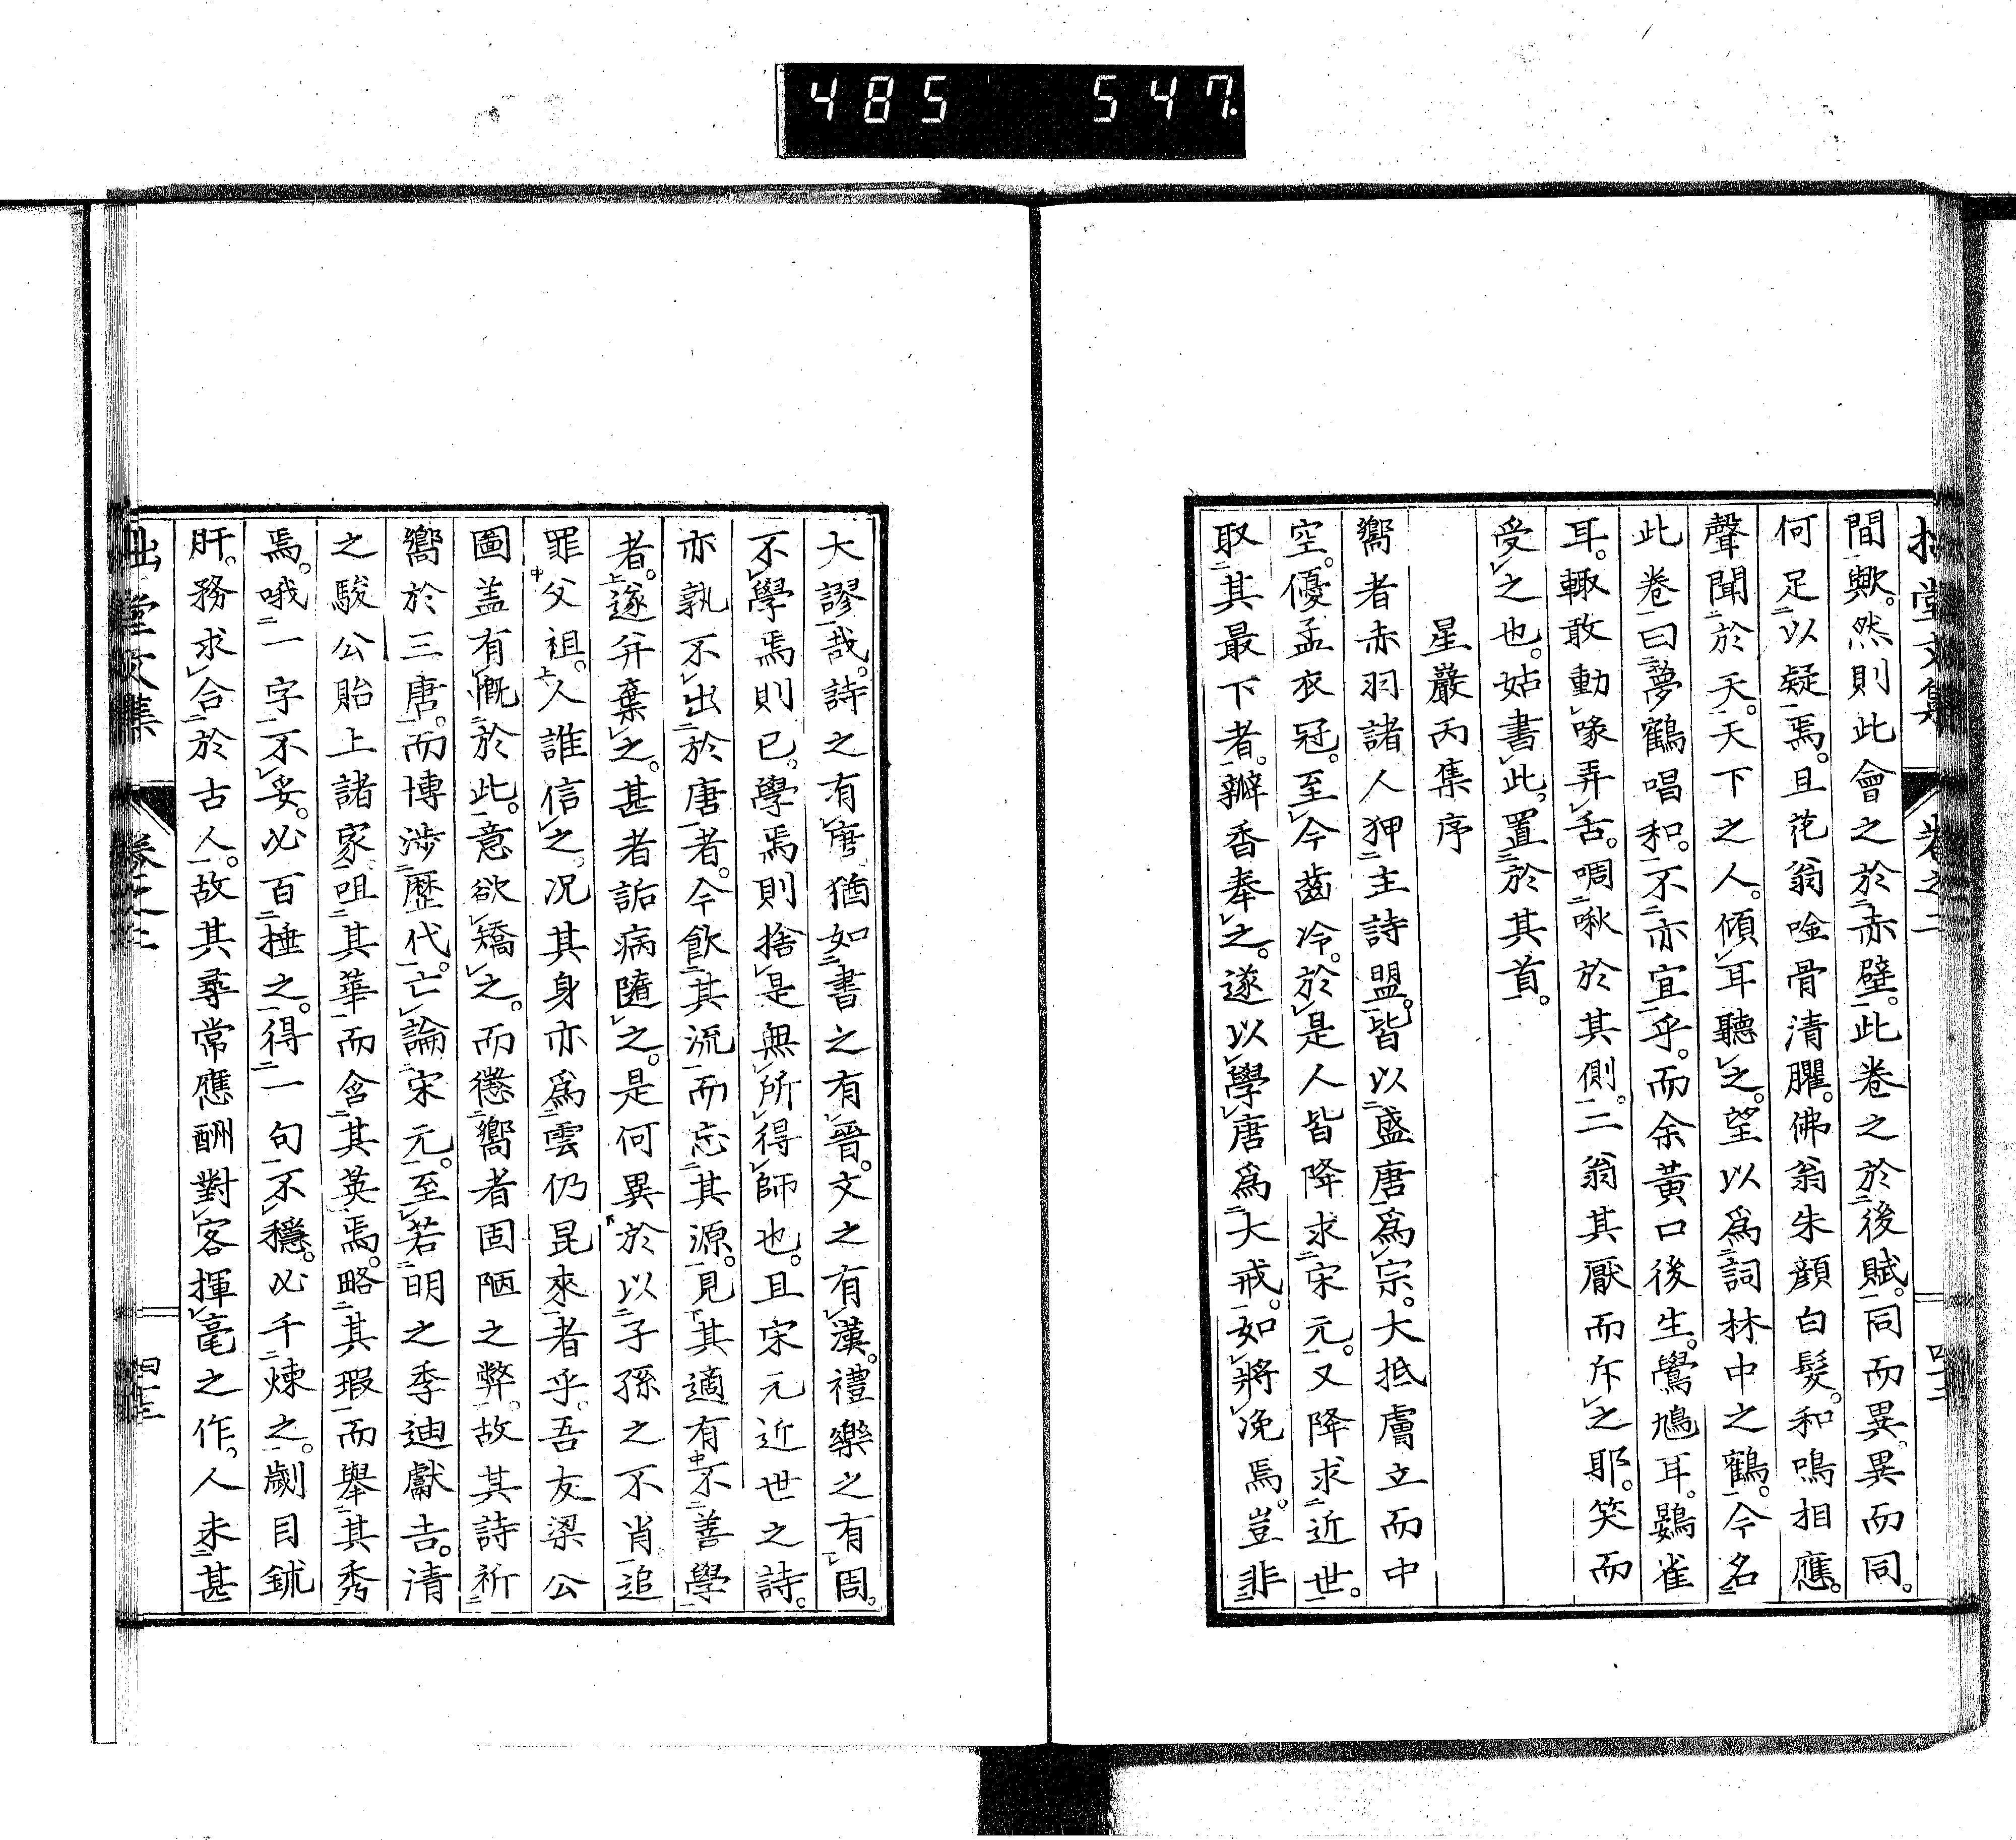 485 547.
間歟。然則此會之於赤壁。此卷之於後賦。同而異。異而同。
何足以疑焉。且花翁唫骨清臞。佛翁朱顏白髮。和鳴相應。
聲聞於天。天下之人。傾耳聽之。望以爲詞林中之鶴。今名
此卷曰夢鶴唱和。不亦宜乎。而余黃口後生。鷽鳩耳。鷃雀
耳。輙敢動喙弄舌。啁啾於其側。二翁其厭而斥之耶。笑而
受之也。姑書此。置於其首。
星巖丙集序
嚮者赤羽諸人狎主詩盟。皆以盛唐爲宗。大抵膚立而中
空。優孟衣冠。至今齒冷。於是人皆降求宋元。又降求近世。
取其最下者。瓣香奉之。遂以學唐爲大戒。如將凂焉。豈非
大謬哉。詩之有唐猶如書之有晉。文之有漢。禮樂之有周。
不學焉則已。學焉則捨是無所得師也。且宋元近世之詩。
亦孰不出於唐者。今飲其流而忘其源。見其適有不善學
者。遂弁棄之。甚者詬病隨之。是何異於以子孫之不肖追
罪父祖。人誰信之。况其身亦爲雲仍昆來者乎。吾友梁公
圖盖有慨於此。意欲矯之。而懲嚮者固陋之弊。故其詩祈
嚮於三唐。而博涉歷代。亡論宋元。至若明之季迪獻吉。清
之駿公貽上諸家。咀其華而含其英焉。略其瑕而舉其秀
焉。哦一字不妥。必百捶之。得一句不穩。必千煉之。劌目鉥
肝。務求合於古人。故其尋常應酬對客揮毫之作。人未甚
拙堂文集 卷之二